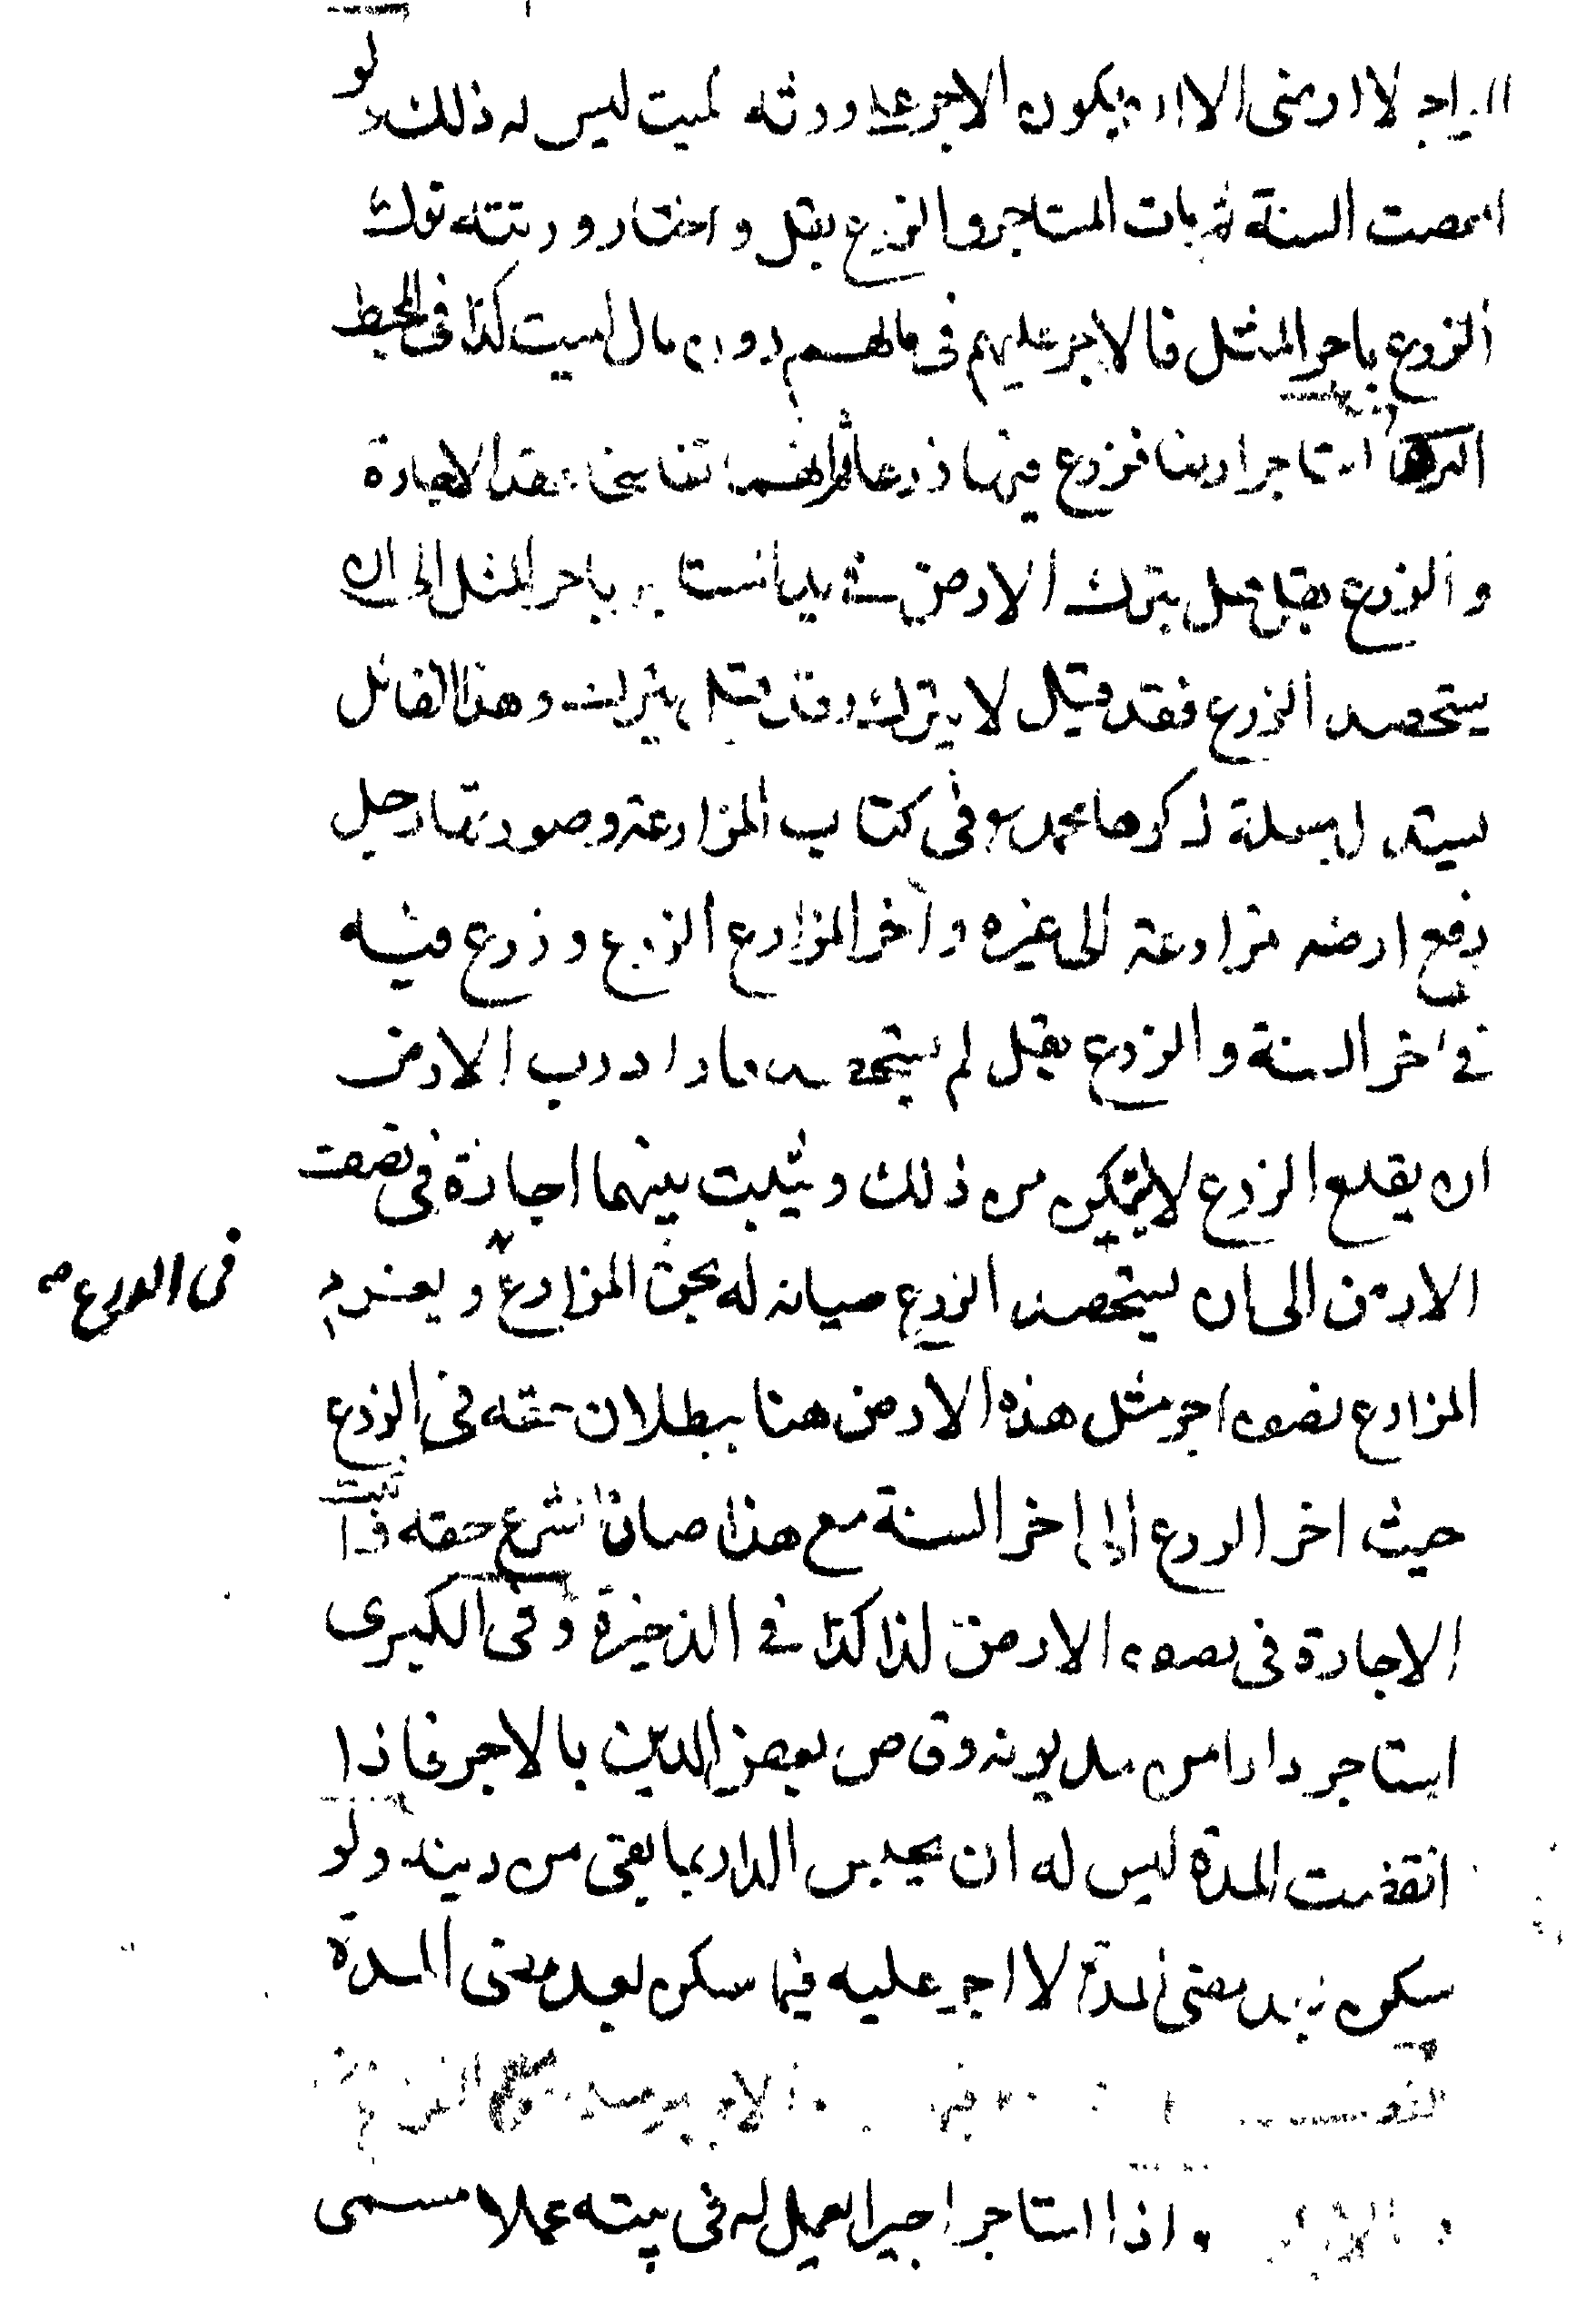 لا ارضى الا ان يكون الاجر على ورثة الميت ليس له ذلك ولو
انقضت السنة ثم مات المستاجر والزرع بقل واختار ورثته ترك
الزرع باجر المثل فالاجر عليهم فى مالهم دون مال الميت كذا فى المحيط
استاجر ارضا فزرع فيها زرعا ثم انهما تفاسخا عقد الاجارة
والزرع بقل هل يترك الارض فى يد المستاجر باجر المثل الى ان
يستحصد الزرع فقد قيل لا يترك وقد قيل يترك وهذا القائل
يستدل بمسئلة ذكرها محمد رح فى كتاب المزارعة وصورتها رجل
دفع ارضه مزارعة الى غيره واخر المزارع الزرع وزرع فيه
فى اخر السنة والزرع بقل لم يستحصد فاراد رب الارض
ان يقلع الزرع لا يتمكن من ذلك ويثبت بينهما اجارة فى نصف
الارض الى ان يستحصد الزرع صيانة لحق المزارع ويغرم
فى الزرع صح
المزارع نصف اجر مثل هذه الارض هنا ببطلان حقه فى الزرع
حيث اخر الزرع الى اخر السنة مع هذا صان الشرع حقه فاثبت
الاجارة فى نصف الارض لذا كذا فى الذخيرة وفى الكبرى
استاجر دارا من مديونه وقاص بعض الدين بالاجر فاذا
انقضت المدة ليس له ان يحبس الدار بما بقى من دينه ولو
سكن بعد مضى المدة لا اجر عليه فيما سكن بعد مضى المدة
واذا استاجر اجيرا ليعمل له فى بيته عملا مسمى